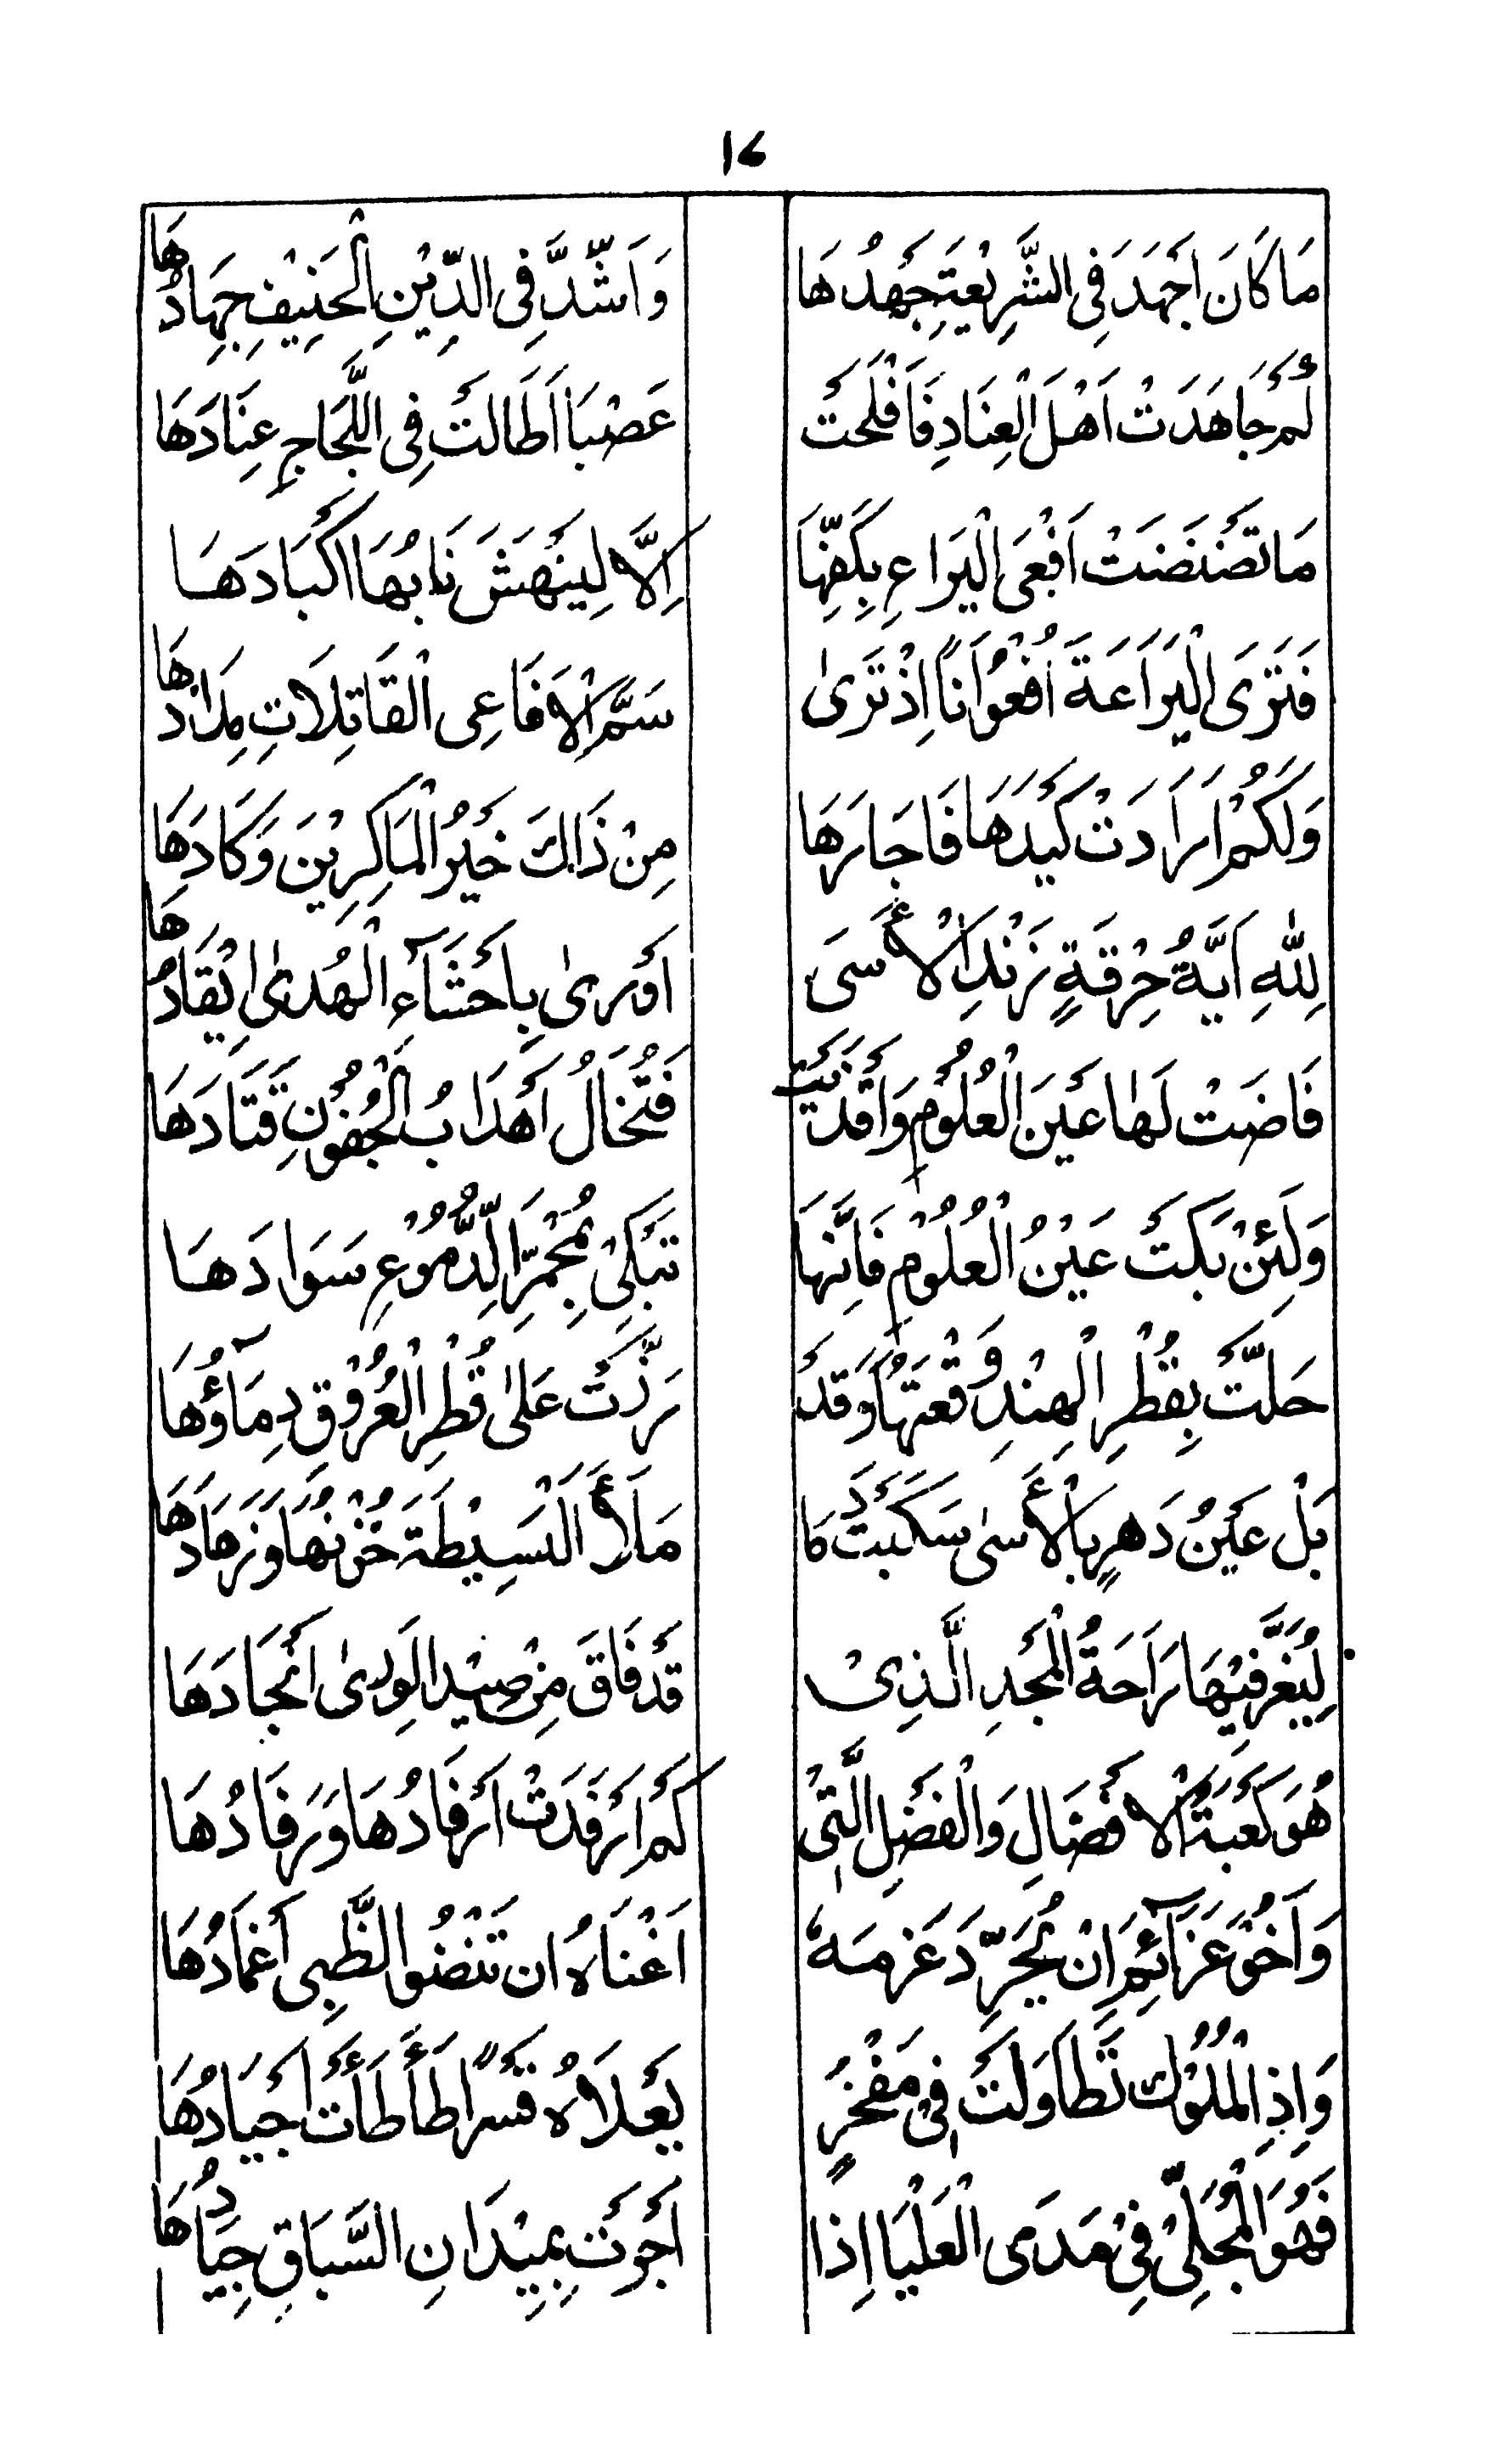 ۱۶
مَا كَانَ اَجْهَدَ فِی الشَّرِيْعَةِ جَهْدُهَا وَاَشَدَّ فِی الدِّيْنِ الْحَنِيْفِ جِهَادُهَا
لَمْ جَاهَدَتْ اَهْلَ الْعِنَادِ فَاَفْلَحَتْ عَصْبًا اَطَالَتْ فِی اللَّجَاجِ عِنَادَهَا
مَا نَضْنَضَتْ اَفْعَی الْيَرَاعِ بِكَفِّهَا اِلَّا لِيَنْهَشَ نَابُهَا اَكْبَادَهَا
فَتَرَی الْيَرَاعَةَ اُفْعُوَانًا اِذْ تَرٰی سَمَّ الْاَفَاعِی الْقَاتِلَاتِ مِدَادُهَا
وَلَكَمْ اَرَادَتْ كَيْدَهَا فَاَجَارَهَا مِنْ ذَالِكَ خَيْرُ الْمَاكِرِيْنَ وَكَادَهَا
لِلّٰهِ اَيَّةُ حِرْقَةٍ زَنْدِ الْاَسَی اَوْرٰی بِاَحْشَآءِ الْهُدٰی اِيْقَادُهَا
فَاضَتْ لَهَا عَيْنَ الْعُلُوْمِ وَاَقْذَيَتْ فَتُخَالُ اَهْدَابُ الْجُفُوْنِ قَتَادَهَا
وَلَئِنْ بَكَتْ عَيْنُ الْعُلُوْمِ فَاِنَّهَا تَبْكِیْ بِمُحْمَرِّ الدُّمُوْعِ سَوَادَهَا
حَلَّتْ بِقُطْرِ الْهِنْدِ وَقْعَتُهَا وَقَدْ رَزَّتْ عَلٰی قُطْرِ الْعُرُوْقِ دِمَآؤُهَا
بَلْ عَيْنُ دَهْرٍ بِالْاَسٰی سَكَبَتْ دَمًا مَلَأَ الْبَسِيْطَةَ حُزْنُهَا وَزَهَادُهَا
لِيُعَزَّ فِيْهَا رَاحَةُ الْمَجْدِ الَّذِیْ قَدْ فَاقَ مِنْ صِيْدِ الْوِرٰی اَنْجَادَهَا
هُوَ كَعْبَةُ الْاَفْضَالِ وَالْفَضْلِ الَّتِیْ كَمْ اَرْفَدَتْ اَرْفَادُهَا وَرَفَادُهَا
وَاَخُوْ عَزَآئِمَ اِنْ يُجَرِّدَ عَزْمَهٗ اَغْنَاهُ اِنْ تَنْضُو الظُّبِی اَغْمَادُهَا
وَاِذِ الْمُلُوْكُ تَطَاوَلَتْ فِیْ مَفْخَرٍ يَعْلَاهُ قَسْرًا طَأْطَأَتْ اَجْيَادُهَا
فَهُوَ الْمُجَلِّیْ فِیْ مَدَی الْعَلْيَا اِذَا اَجْرَتْ بِمِيْدَانِ السَّبَاقِ جِيَادُهَا